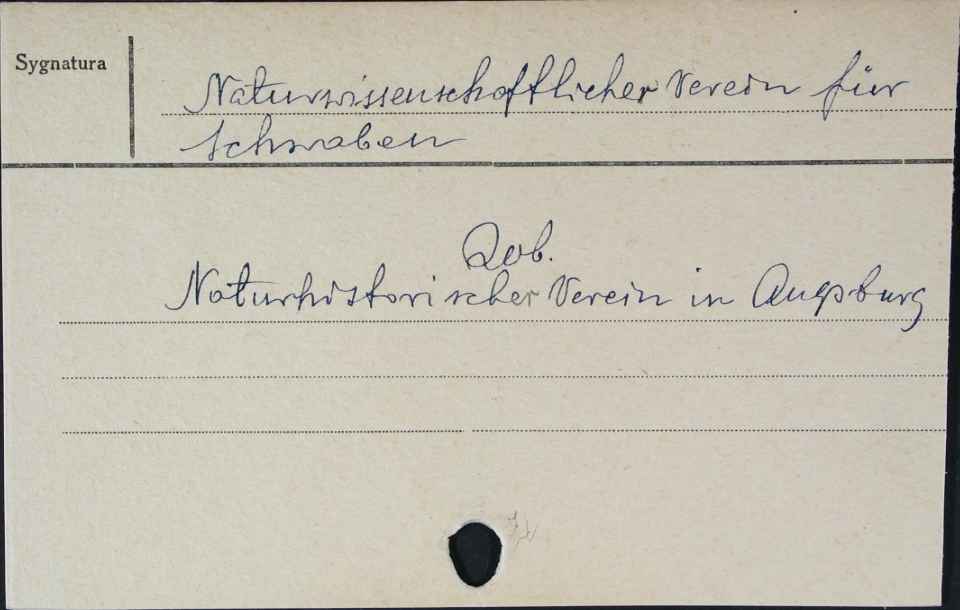 Sygnatura
Naturwissenschaftlicher Verein für
Schwaben
Zob.
Naturhistorischer Verein in Augsburg